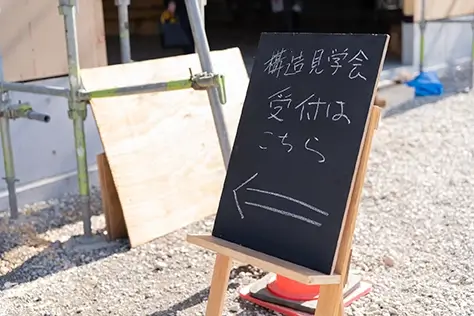 構造見学会
受付は
こちら